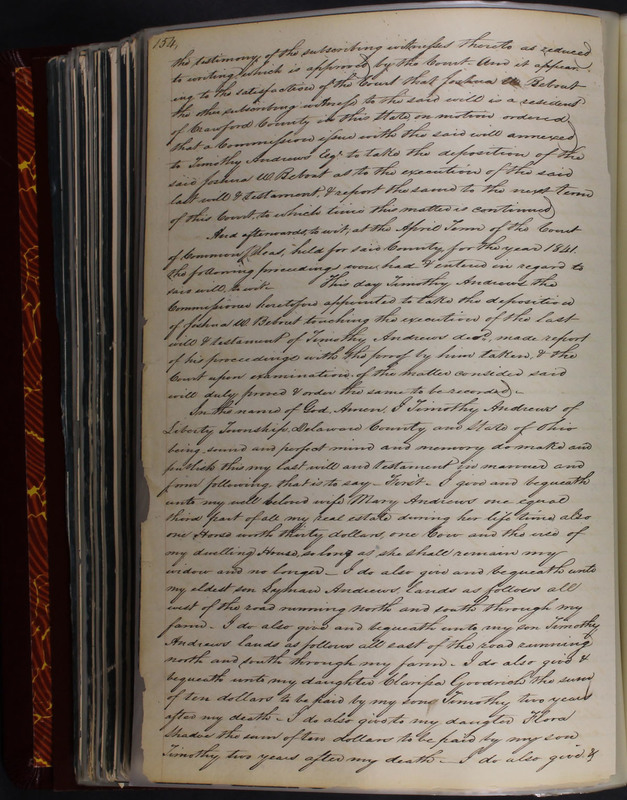 154,
the testimony of the subscribing witnesses thereto as reduced
to writing which is approved by the Court. And it appear-
ing to the satisfaction of the Court that Joshua W Bebout
the other subscribing witness to the said will is a resident
of Crawford County in this State, on motion ordered
that a Commission issue with the said will annexed
to Timothy Andrews Esqr to take the deposition of the
said Joshua W. Bebout as to the execution of the said
last will & testament, & report the same to the next term
of this Court, to which time this matter is continued
And afterwards, to wit, at the April Term of the Court
of Common Pleas, held for said County, for the year 1841.
the following proceedings were had & entered in regard to
said will, to wit. This day Timothy Andrews the
Commissioner heretofore appointed to take the deposition
of Joshua W. Bebout touching the execution of the last
will & testament of Timothy Andrews decd. made report
of his proceedings with the proof by him taken, & the
Court upon examination of the matter consider said
will duly proved & order the same to be recorded
In the name of God, Amen, I Timothy Andrews of
Liberty Township, Delaware County and State of Ohio
being sound and perfect mind and memory do make and
publish this my last will and testament in manner and
form following that is to say - First - I give and bequeath
unto my well beloved wife Mary Andrews one equal
third part of all my real estate during her life time also
one Horse worth thirty dollars, one Cow and the use of
my dwelling House, so long as she shall remain my
widow and no longer - I do also give and bequeath unto
my eldest son Lyman Andrews, lands as follows all
west of the road running north and south through my
farm - I do also give and bequeath unto my son Timothy
Andrews lands as follows all east of the road running
north and south through my farm - I do also give &
bequeath unto my daughter Clarissa Goodrich the sum
of ten dollars to be paid by my son Timothy two years
after my death - I do also give to my daugter Flora
the sum of ten dollars to be paid by my son
Timothy two years after my death - I do also give &